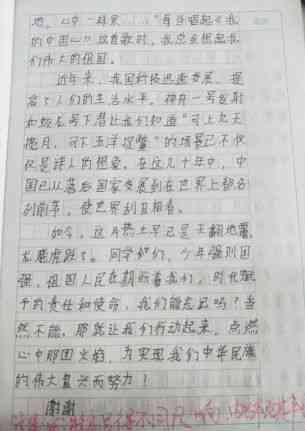 地,心中一样亲……"每当唱起《我
的中国心》这首歌时,我总会想起我
们伟大的祖国。
近年来,我国科技迅速发展,提
高了人们的生活水平。神舟一号发射
和蛟龙号下潜让我们知道"可上九天
揽月,可下五洋捉鳖"的场景已不仅
仅是诗人的想象。在这几十年中,中
国已从落后国家发展到在世界上都名
列前茅,使世界刮目相看。
如今,这片热土早已是天翻地覆,
龙腾虎跃了。同学们,少年强则国
强,祖国人民在期盼着我们。时代赋
予的责任和使命,我们能忘吗?当
然不能,那就让我们行动起来,点燃
心中那团火焰,为实现我们中华民族
的伟大复兴而努力!
谢谢